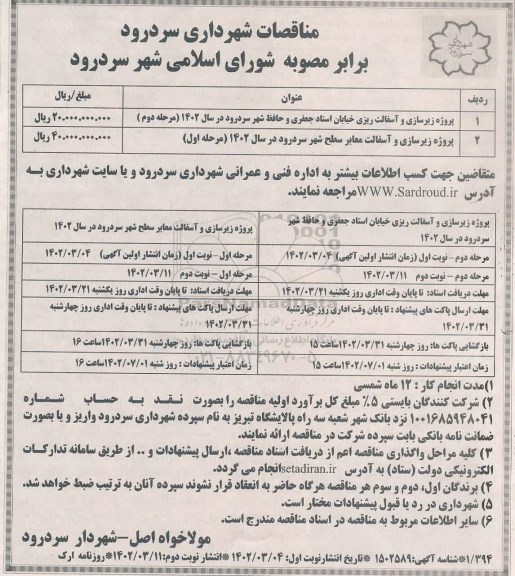 مناقصات شهرداری سردرود
برابر مصوبه شورای اسلامی شهر سردرود
ردیف عنوان مبلغ/ریال
۱ پروژه زیرسازی و آسفالت ریزی خیابان استاد جعفری و حافظ شهر سردرود در سال ۱۴۰۲ (مرحله دوم) ۲۰.۰۰۰.۰۰۰.۰۰۰
۲ پروژه زیرسازی و آسفالت معابر سطح شهر سردرود در سال ۱۴۰۲ (مرحله اول) ۴۰.۰۰۰.۰۰۰.۰۰۰
متقاضین جهت کسب اطلاعات بیشتر به اداره فنی و عمرانی شهرداری سردرود و یا سایت شهرداری به
آدرس WWW.Sardroud.ir مراجعه نمایند.
پروژه زیرسازی و آسفالت ریزی خیابان استاد جعفری و حافظ شهر سردرود در سال ۱۴۰۲ پروژه زیرسازی و آسفالت معابر سطح شهر سردرود در سال ۱۴۰۲
مرحله دوم - نوبت اول (زمان انتشار اولین آگهی) ۱۴۰۲/۰۳/۰۴ مرحله اول - نوبت اول (زمان انتشار اولین آگهی) ۱۴۰۲/۰۳/۰۴
مرحله دوم - نوبت دوم ۱۴۰۲/۰۳/۱۱ مرحله اول - نوبت دوم ۱۴۰۲/۰۳/۱۱
مهلت دریافت اسناد: تا پایان وقت اداری روز یکشنبه ۱۴۰۲/۰۳/۲۱ مهلت دریافت اسناد: تا پایان وقت اداری روز یکشنبه ۱۴۰۲/۰۳/۲۱
مهلت ارسال پاکت های پیشنهاد : تا پایان وقت اداری روز چهارشنبه ۱۴۰۲/۰۳/۳۱ مهلت ارسال پاکت های پیشنهاد : تا پایان وقت اداری روز چهارشنبه ۱۴۰۲/۰۳/۳۱
بازگشایی پاکت ها: روز چهارشنبه ۱۴۰۲/۰۳/۳۱ ساعت ۱۵ بازگشایی پاکت ها: روز چهارشنبه ۱۴۰۲/۰۳/۳۱ ساعت ۱۶
زمان اعتبار پیشنهادات : روز شنبه ۱۴۰۲/۰۷/۰۱ ساعت ۱۵ زمان اعتبار پیشنهادات : روز شنبه ۱۴۰۲/۰۷/۰۱ ساعت ۱۶
۱) مدت انجام کار : ۱۲ ماه شمسی
۲) شرکت کنندگان بایستی ۵٪ مبلغ کل برآورد اولیه مناقصه را بصورت نقد به حساب شماره
۱۰۰۱۶۸۵۹۴۸۰۴۱ نزد بانک شهر شعبه سه راه پالایشگاه تبریز به نام سپرده شهرداری سردرود واریز و یا بصورت
ضمانت نامه بانکی بابت سپرده شرکت در مناقصه ارائه نمایند.
۳) کلیه مراحل واگذاری مناقصه اعم از دریافت اسناد مناقصه ،ارسال پیشنهادات و .. از طریق سامانه تدارکات
الکترونیکی دولت (ستاد) به آدرس setadiran.ir انجام می گردد.
۴) برندگان اول، دوم و سوم هر مناقصه هرگاه حاضر به انعقاد قرار نشوند سپرده آنان به ترتیب ضبط خواهد شد.
۵) شهرداری در رد یا قبول پیشنهادات مختار است.
۶) سایر اطلاعات مربوط به مناقصه در اسناد مناقصه مندرج است.
مولاخواه اصل-شهردار سردرود
۱/۳۹۴ *شناسه آگهی: ۱۵۰۲۵۸۹ *تاریخ انتشار نوبت اول: ۱۴۰۲/۰۳/۰۴ *انتشار نوبت دوم: ۱۴۰۲/۰۳/۱۱ *روزنامه ارک